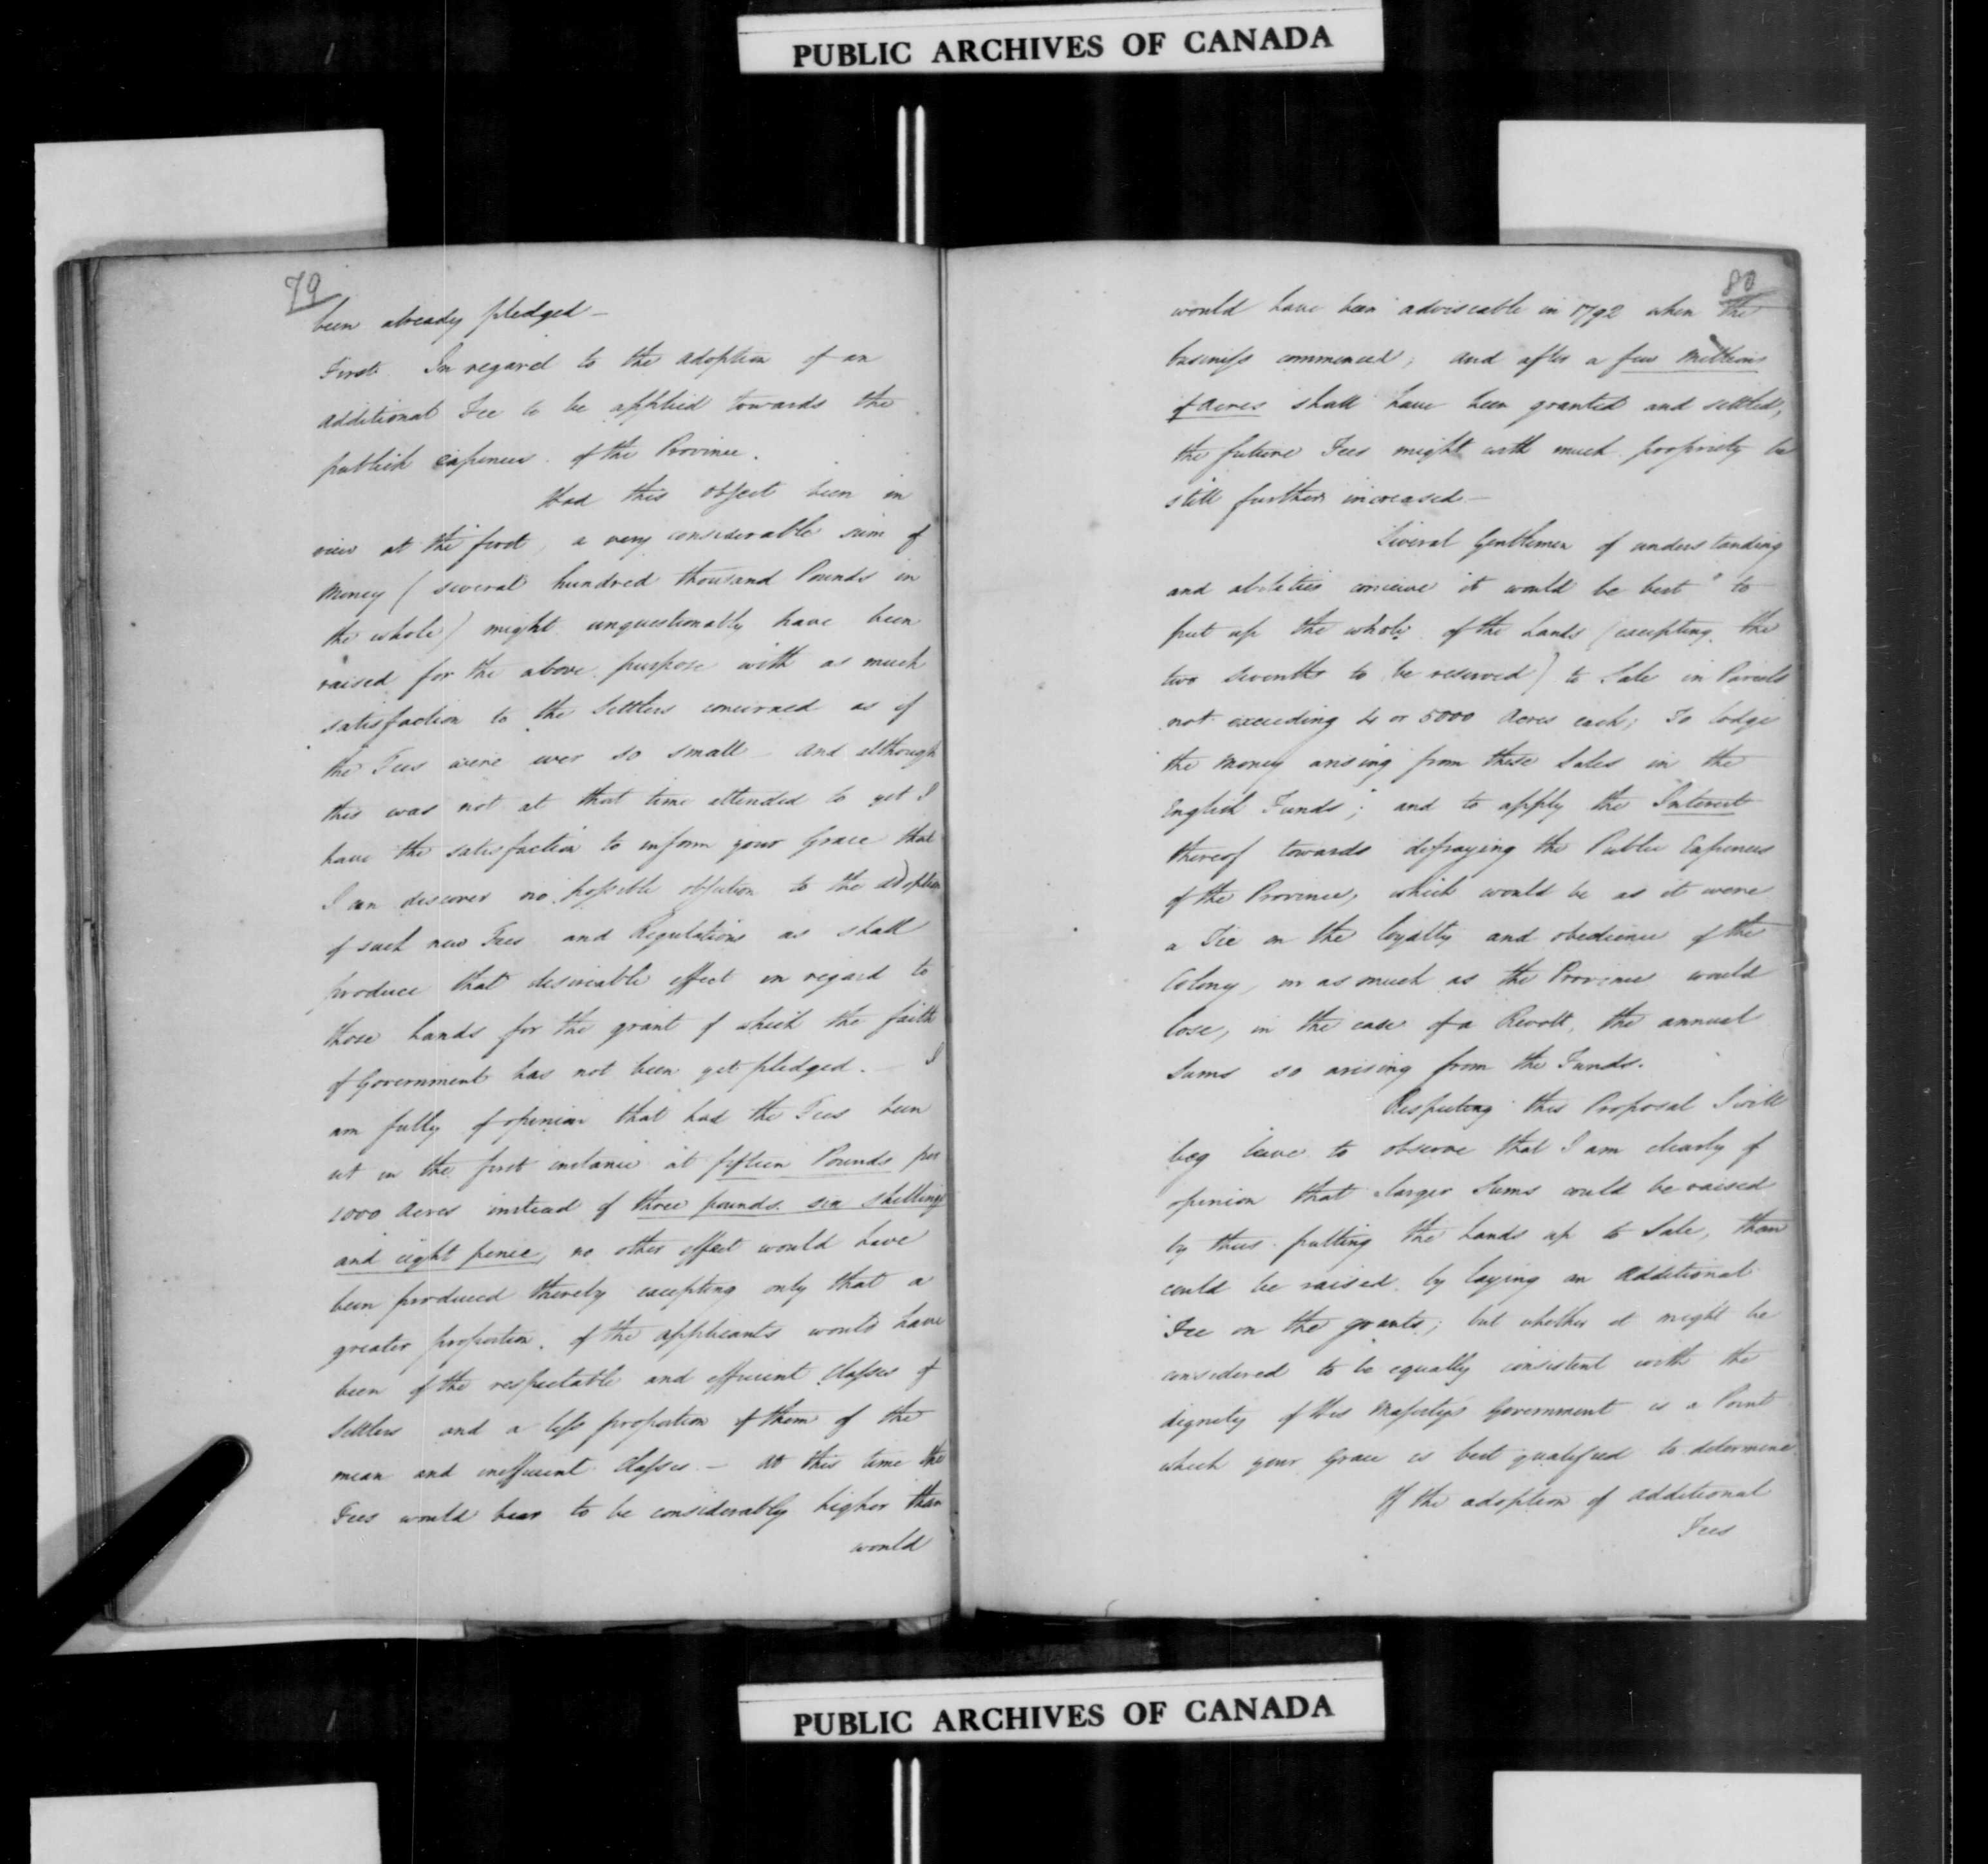 PUBLIC ARCHIVES OF CANADA
79
been already pledged —
First. In regard to the adoption of an
additional Fee to be applied towards the
publick expences of the Province.
Had this object been in
view at the first, a very considerable sum of
Money (several hundred thousand Pounds in
the whole) might unquestionably have been
raised for the above purpose with as much
satisfaction to the Settlers concerned as if
the Fees were ever so small — and although
this was not at that time attended to yet I
have the satisfaction to inform your Grace that
I can discover no possible objection to the adoption
of such new Fees and Regulations as shall
produce that desireable effect in regard to
those Lands for the grant of which the faith
of Government has not been yet pledged. — I
am fully of opinion that had the Fees been
set in the first instance at fifteen Pounds per
1000 Acres instead of three pounds six shillings
and eight pence, no other effect would have
been produced thereby excepting only that a
greater proportion of the applicants would have
been of the respectable and efficient Classes of
Settlers and a less proportion of them of the
mean and inefficient Classes. — At this time the
Fees would bear to be considerably higher than
would
80
would have been adviseable in 1792 when the
business commenced; and after a few Millions
of Acres shall have been granted and settled,
the future Fees might with much propriety be
still further increased —
Several Gentlemen of understanding
and abilities conceive it would be best "to
put up the whole of the Lands (excepting the
two sevenths to be reserved) to Sale in Parcels
not exceeding 4 or 5000 Acres each; To lodge
the Money arising from these Sales in the
English Funds; and to apply the Interest
thereof towards defraying the Public Expences
of the Province, which would be as it were
a Tie on the loyalty and obedience of the
Colony, in as much as the Province would
lose, in the case of a Revolt, the annual
Sums so arising from the Funds.
Respecting this Proposal I will
beg leave to observe that I am clearly of
opinion that larger Sums could be raised
by thus putting the Lands up to Sale, than
could be raised by laying an additional
Fee on the grants; but whether it might be
considered to be equally consistent with the
dignity of His Majesty's Government is a Point
which your Grace is best qualified to determine.
If the adoption of additional
Fees
PUBLIC ARCHIVES OF CANADA